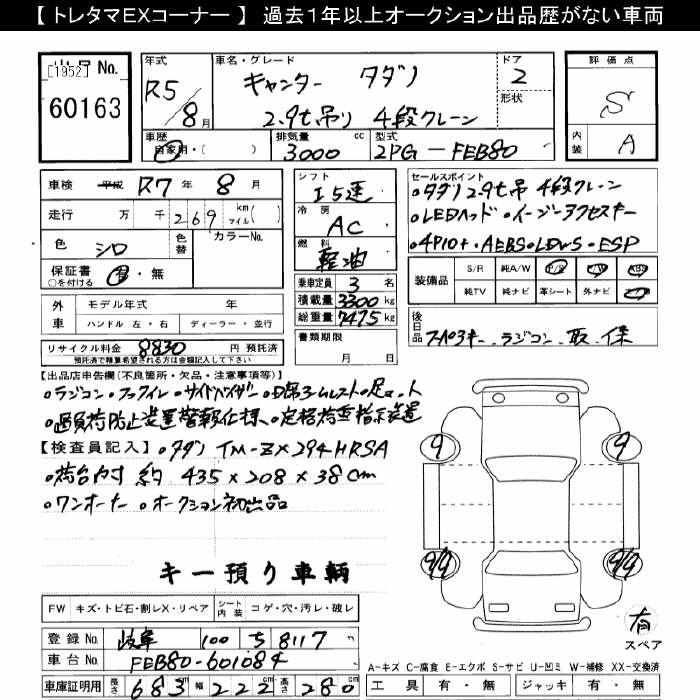 【 トレタマEXコーナー 】 過去1年以上オークション出品歴がない車両
[1952] No.
60163
年式
R5/8月
車名・グレード
キャンター タダノ
2.9t吊り 4段クレーン
ドア
2
形状
評価点
S
内装
A
車歴
自家用・( )
排気量
3000 cc
型式
2PG-FEB80
車検 平成 R7年 8月
走行 万 千 269 km/マイル( )
色 シロ
色替
カラーNo.
保証書 有・無
○を付ける
外車
モデル年式 年
ハンドル 左・右 ディーラー・並行
リサイクル料金 8830 円 預託済
預託済で精算希望される方は金額記入して下さい
シフト
I5速
冷房
AC
燃料
軽油
乗車定員 3 名
積載量 3300 kg
総重量 7475 kg
書類期限
月 日
セールスポイント
・タダノ2.9t吊 4段クレーン
・LEDヘッド・イージーアクセスキー
・4P10+・AEBS・LDWS・ESP
装備品
S/R 純A/W P/S P/W ABS
純TV 純ナビ 革シート 外ナビ
後日品
スペアキー、ラジコン、取、保
【出品店申告欄(不良箇所・欠品・注意事項等)】
・ラジコン・フックイン・サイドバイザー・
・過負荷防止装置警報仕様、定格荷重指示装置
【検査員記入】・タダノ TM-ZX294HRSA
・荷台内寸 約 435×208×38cm
・ワンオーナー・オークション初出品
キー預り車輌
FW キズ・トビ石・割レX・リペア
シート内装 コゲ・穴・汚レ・破レ
登録No. 岐阜 100 ち 8117
車台No. FEB80-601084
車庫証明用 長さ 683 cm 幅 222 cm 高さ 280 cm
9 9
9/9 9/9
有
スペア
A-キズ C-腐食 E-エクボ S-サビ U-凹ミ W-補修 XX-交換済
工具 有・無 ジャッキ 有・無